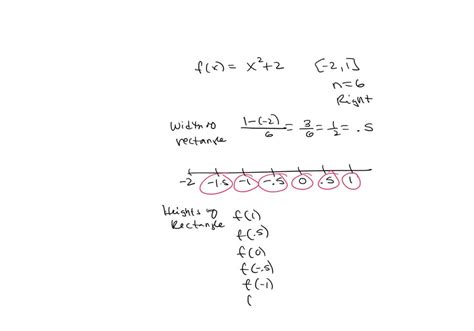 f(x) = x²+2 [-2,1]
n=6
Right
Width of rectangle (1-(-2))/6 = 3/6 = 1/2 = .5
-2 -1.5 -1 -.5 0 .5 1
Heights of Rectangle f(1)
f(.5)
f(0)
f(-.5)
f(-1)
(